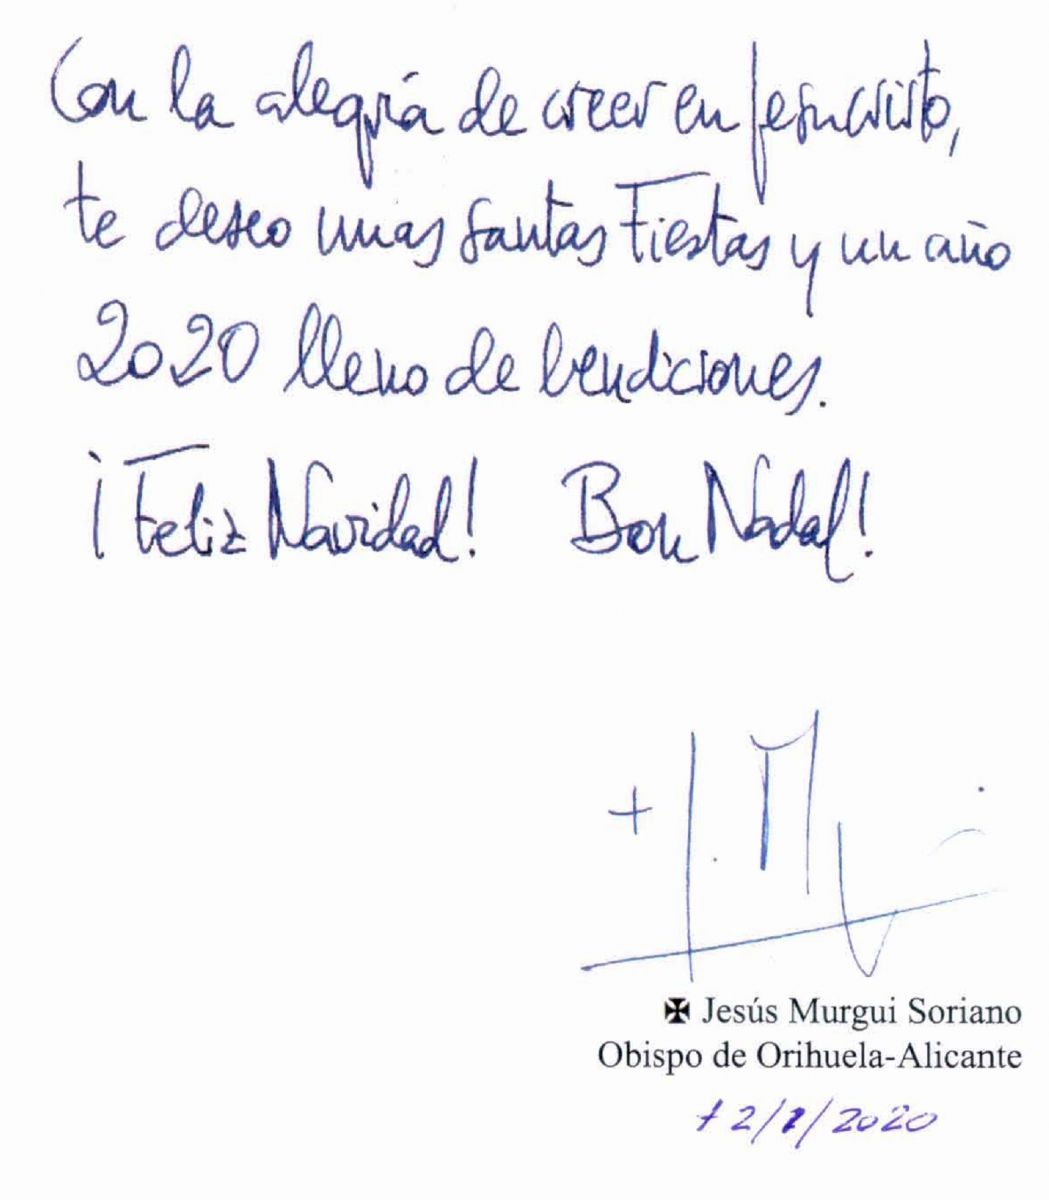 Con la alegría de creer en Jesucristo,
te deseo unas Santas Fiestas y un año
2020 lleno de bendiciones.
¡Feliz Navidad! Bon Nadal!
+ J. M
✠ Jesús Murgui Soriano
Obispo de Orihuela-Alicante
+2/1/2020